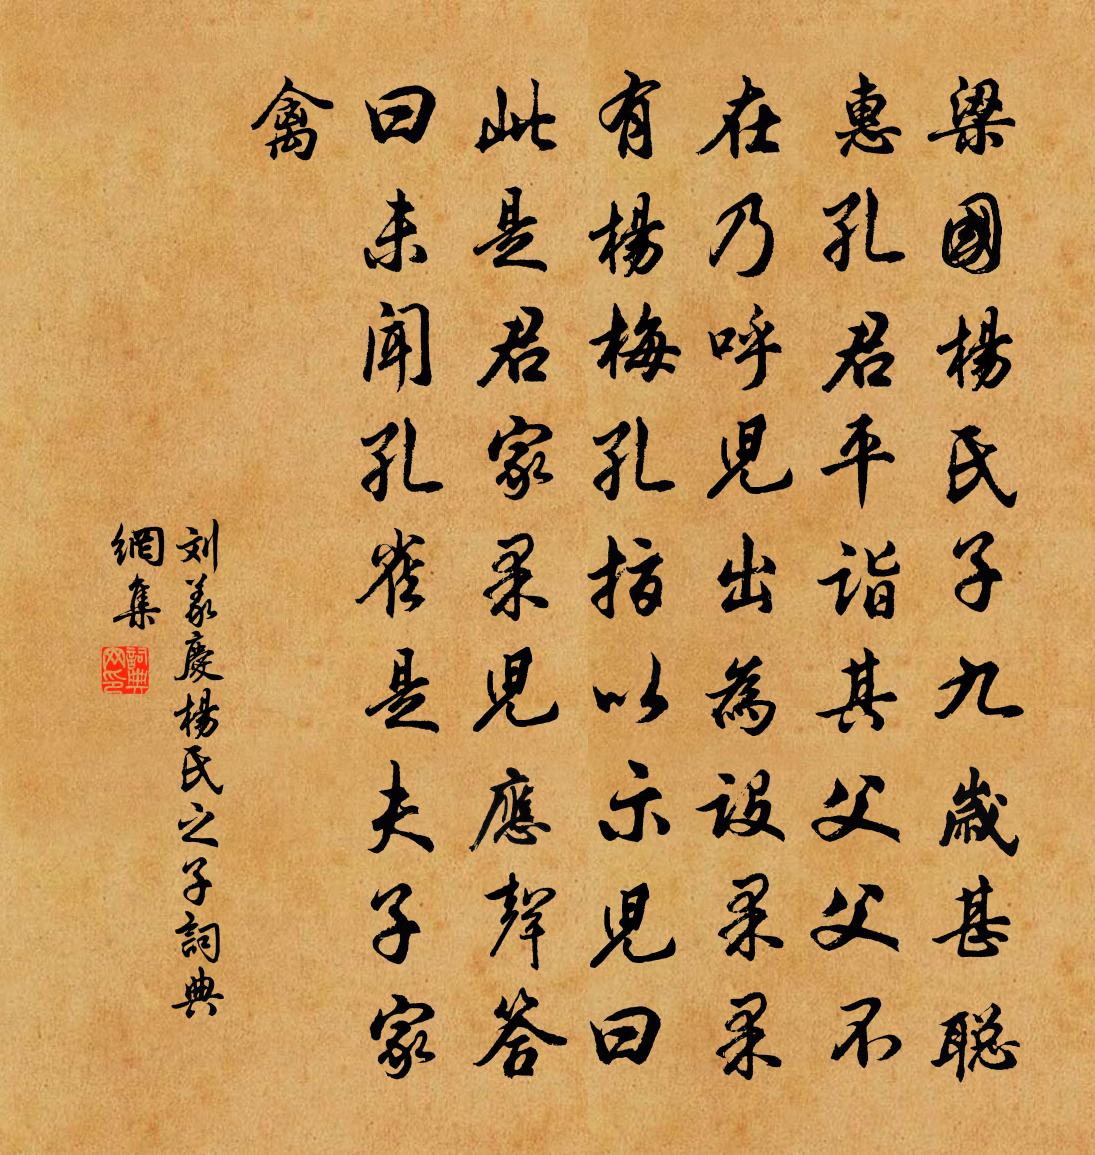 梁國楊氏子九歲甚聡
惠孔君平詣其父父不
在乃呼児出為設果果
有楊梅孔指以示児曰
此是君家果児應聲答
曰未聞孔雀是夫子家
禽
刘義慶楊氏之子詞典
網集
詞典
网印